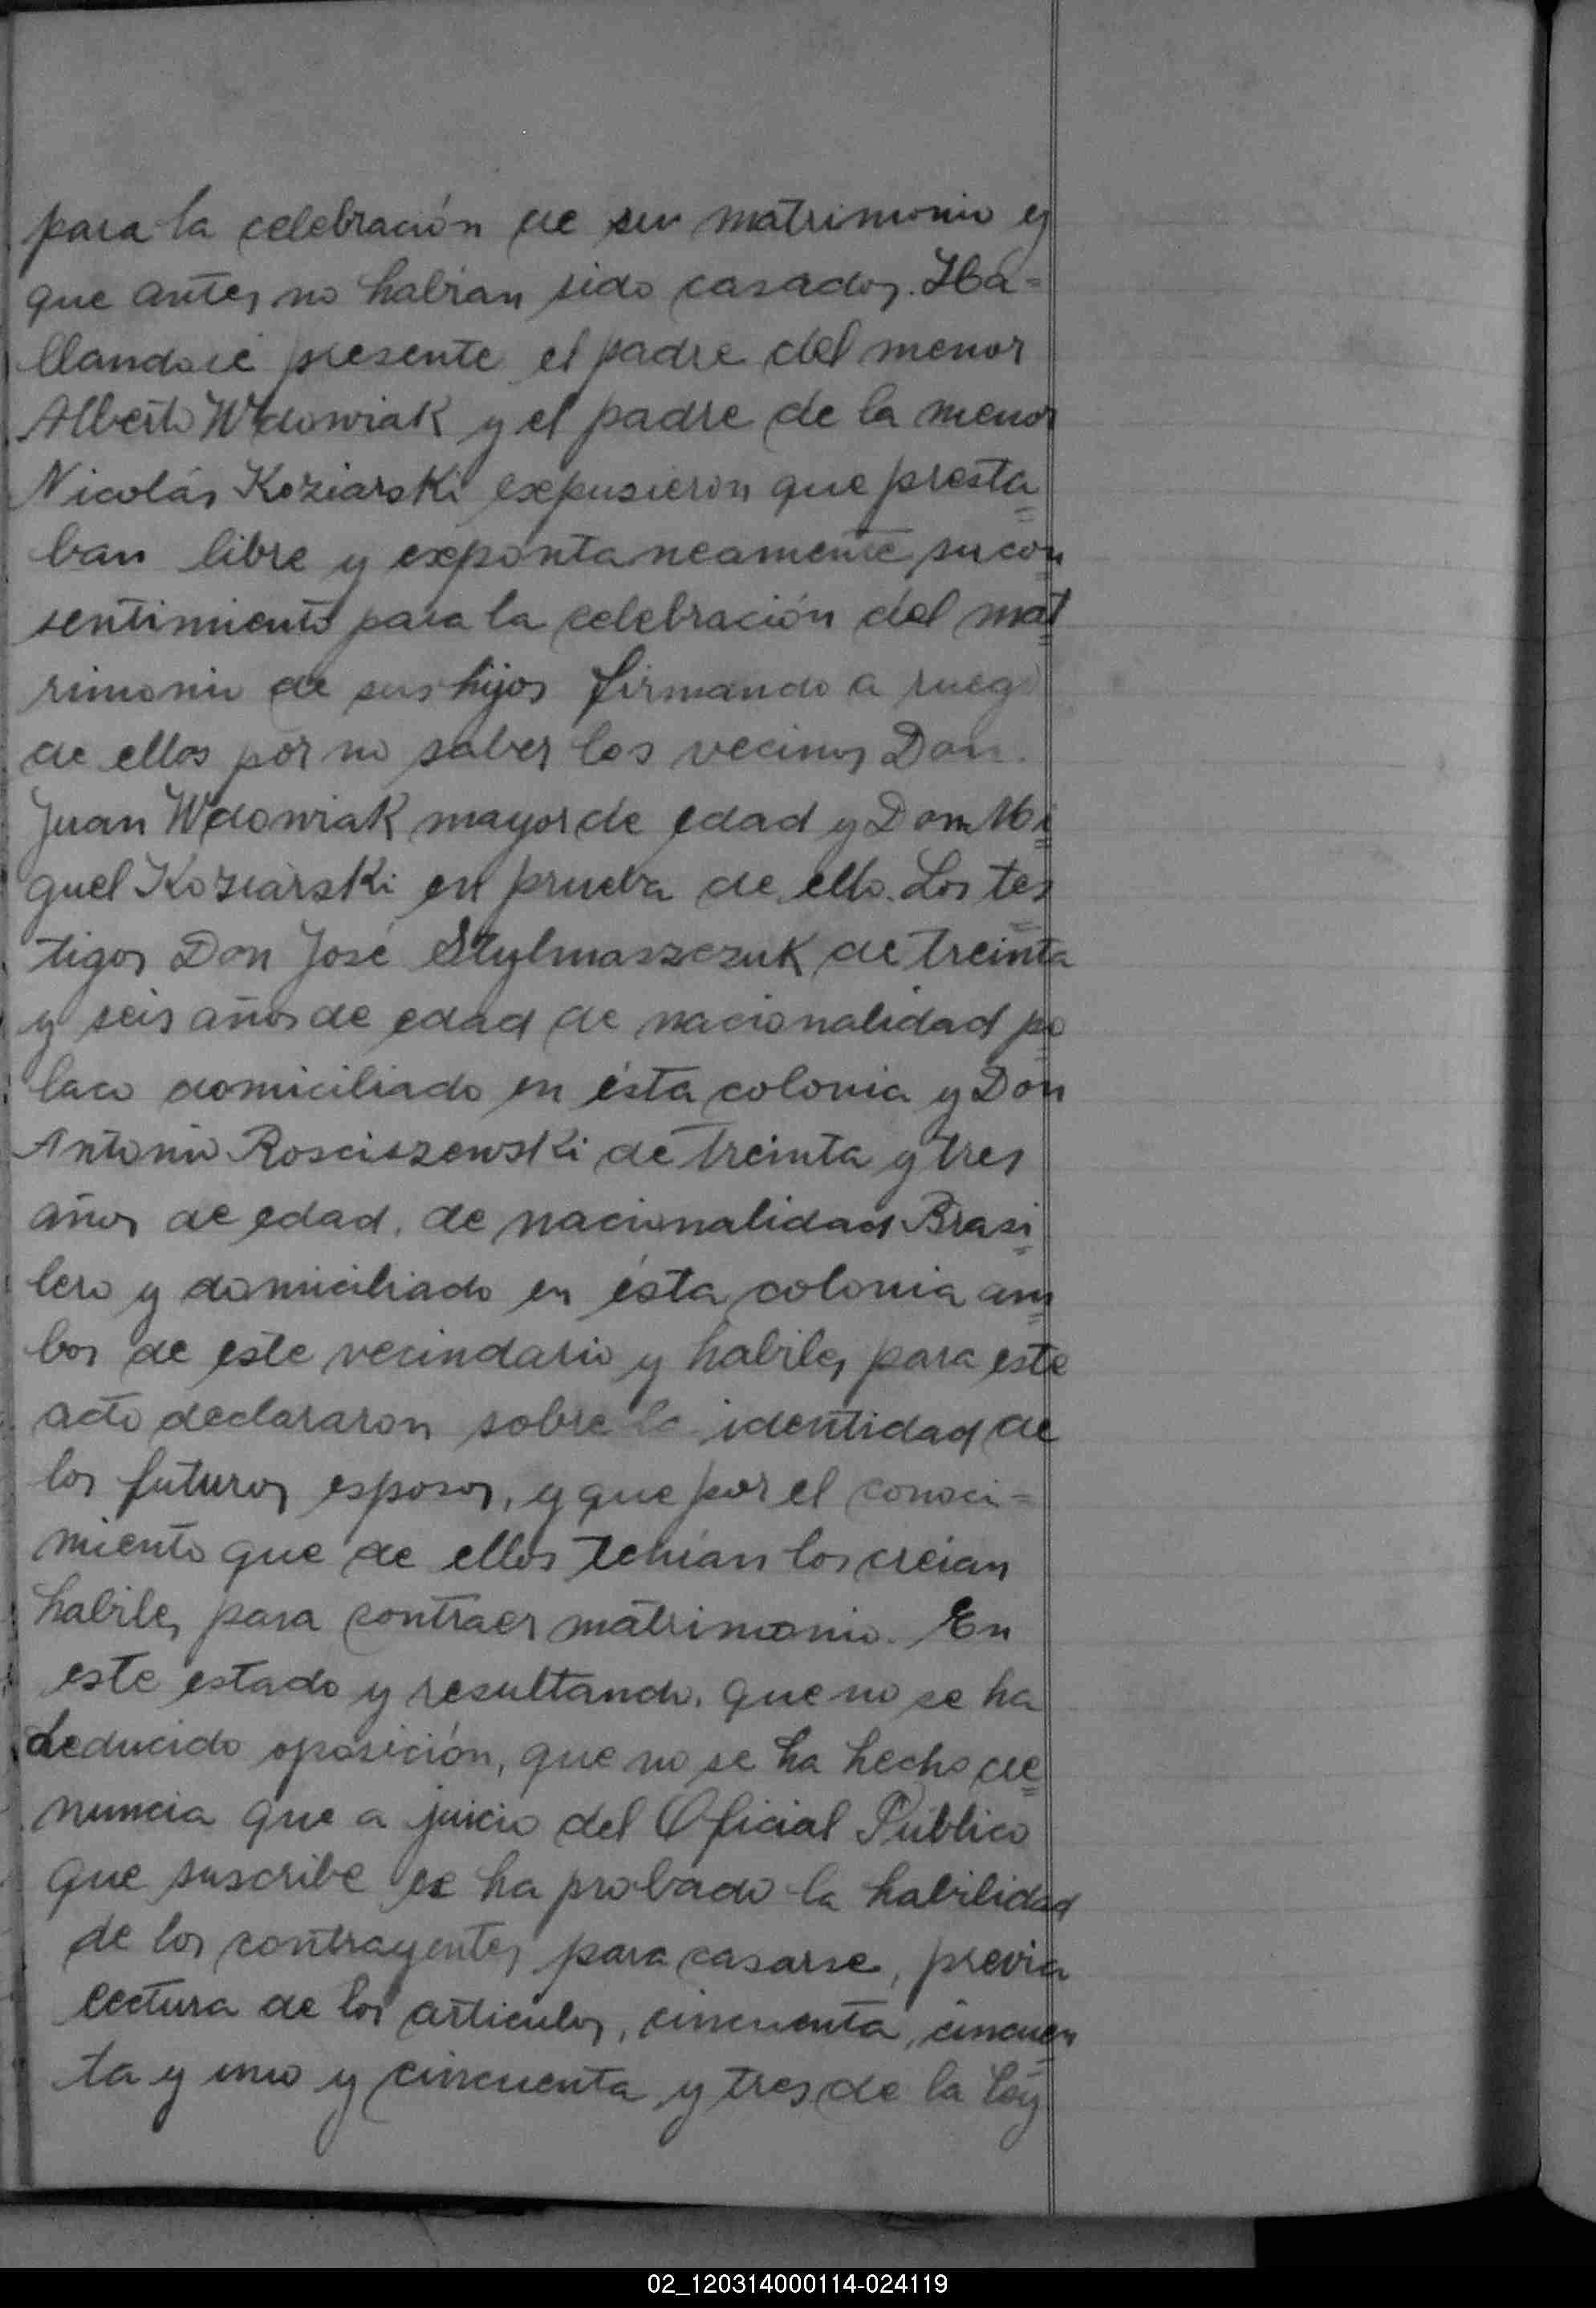 para la celebración de su matrimonio y
que antes no habían sido casados. Ha=
llandose presente el padre del menor
Alberto Wdowiak y el padre de la menor
Nicolás Koziarski expusieron que presta
ban libre y expontaneamente su con
sentimiento para la celebración del mat
rimonio de sus hijos firmando a ruego
de ellos por no saber los vecinos Don
Juan Wdowiak mayor de edad y Don Mi
guel Koziarski en prueba de ello. Los tes
tigos Don José Stylmaszczuk de treinta
y seis años de edad de nacionalidad po
laco domiciliado en ésta colonia y Don
Antonio Rosciszewski de treinta y tres
años de edad. de nacionalidad Brasi
lero y domiciliado en ésta colonia am
bos de este vecindario y habiles para este
acto declararon sobre la identidad de
los futuros esposos, y que por el conoci=
miento que de ellos tenían los creian
habiles para contraer matrimonio. En
este estado y resultando. que no se ha
deducido oposición, que no se ha hecho de
nuncia que a juicio del Oficial Público
que suscribe se ha probado la habilidad
de los contrayentes para casarse, previa
lectura de los articulos, cincuenta, cincuen
ta y uno y cincuenta y tres de la ley
02_120314000114-024119